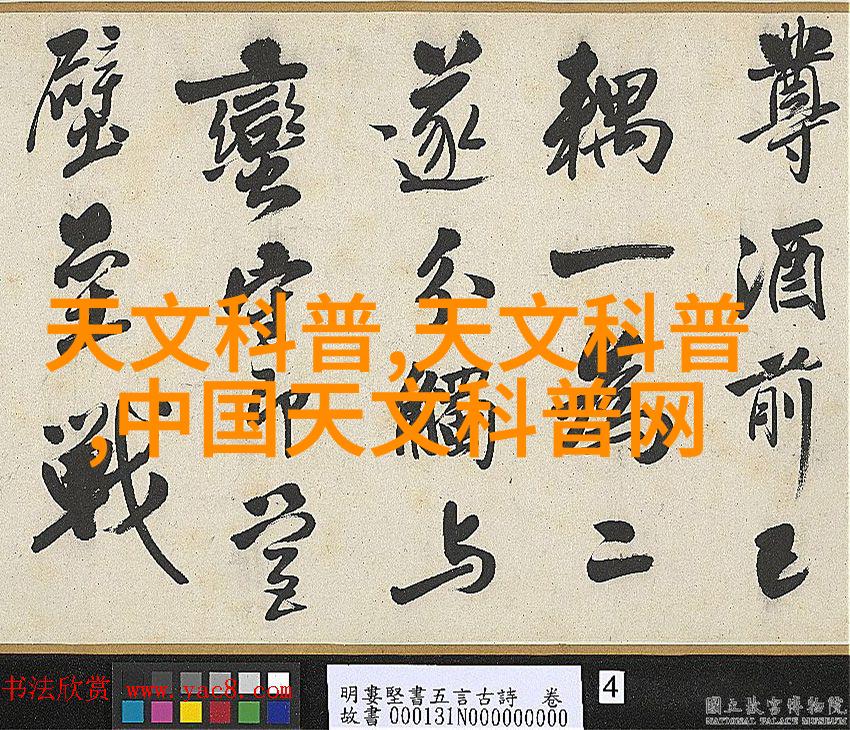 尊酒前已
耦一二
遂分觸与
蠻營
壁壘戰
天文科普,天文科普
,中国天文科普网
书法欣赏 www.yac8.com
明婁堅書五言古詩 卷
故書000131N000000000
4
國立故宮博物院
NATIONAL PALACE MUSEUM